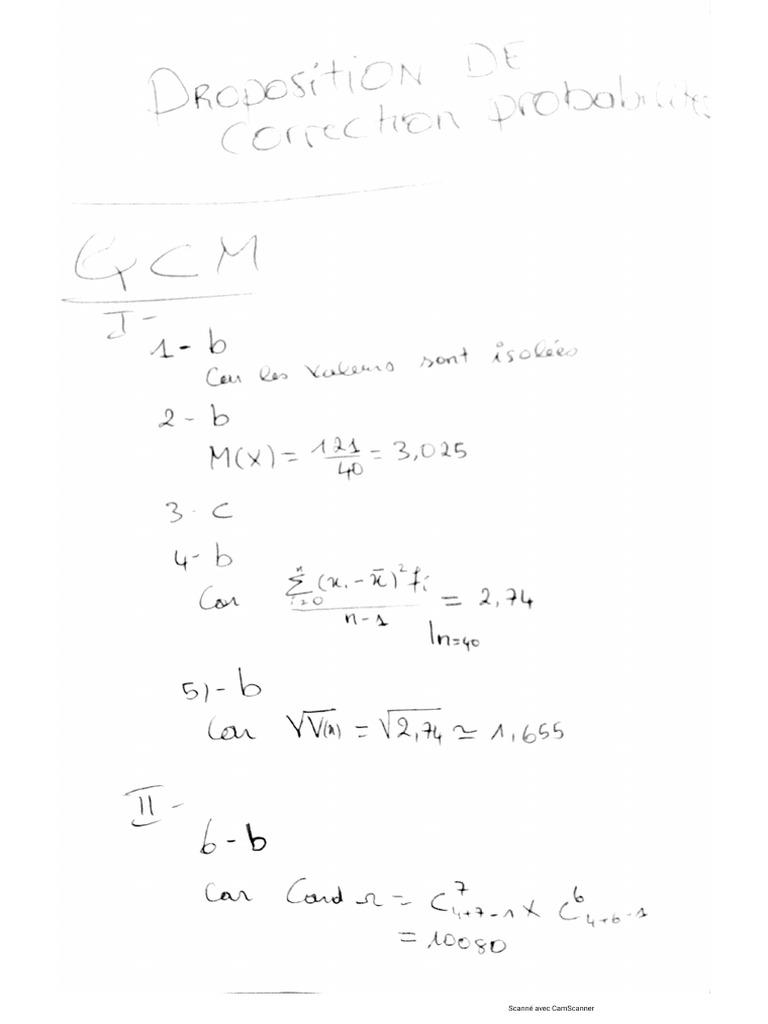 PROPOSITION DE
correction probabilités
QCM
I-
1- b
Car les valeurs sont isolées
2 - b
M(X) = 121/40 = 3,025
3. c
4- b
Car \sum_{i=0}^{n} (x_i - \bar{x})^2 f_i / n-1 = 2,74 |n=40
5)- b
Car √V(x) = √2,74 ≃ 1,655
II-
6-b
Car Card Ω = C^7_{4+7-1} × C^6_{4+6-1}
= 10080
Scanné avec CamScanner